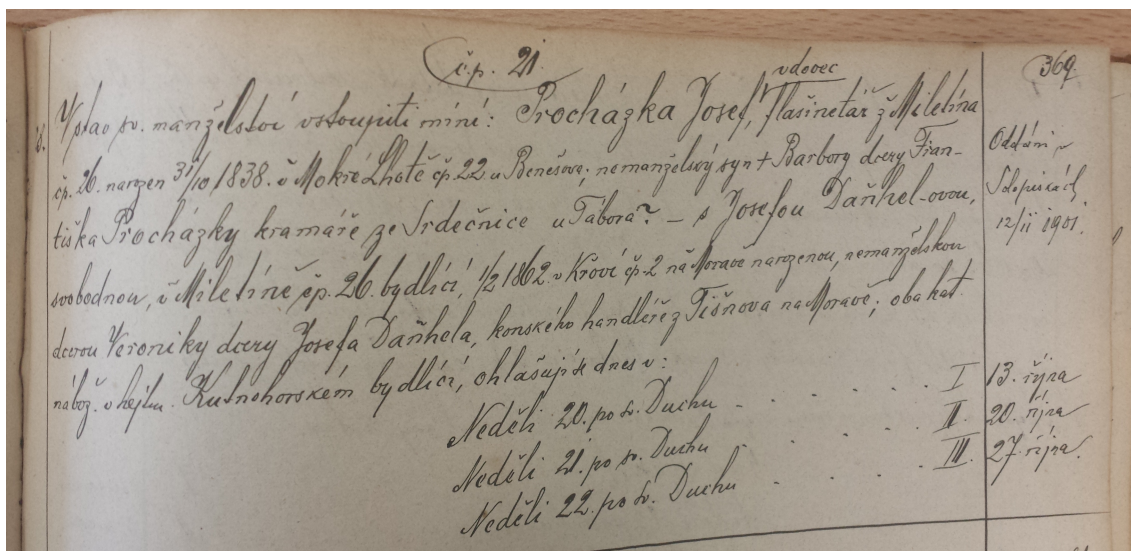 č.p. 21.
369.
vdovec
V stav sv. manželství vstoupiti míní: Procházka Josef, flašinetář z Miletína
čp. 26. narozen 31/10 1838. v Mokré Lhotě čp. 22 u Benešova, nemanželský syn + Barbory dcery Fran-
tiška Procházky kramáře ze Srdečnice u Tábora? – s Josefou Daňhel-ovou,
svobodnou, v Miletíně čp. 26. bydlící, 1/2 1862. v Kroví čp. 2 na Moravě narozenou, nemanželskou
dcerou Veroniky dcery Josefa Daňhela, konského handlíře z Tišnova na Moravě; oba kat.
nábož. v hejtm. Kutnohorském bydlící, ohlašují se dnes v:
Neděli 20. po sv. Duchu . . . . . I
Neděli 21. po sv. Duchu . . . . . II.
Neděli 22. po sv. Duchu . . . . III.
Oddáni v
12/11 1901.
13. října
20. října
27. října.